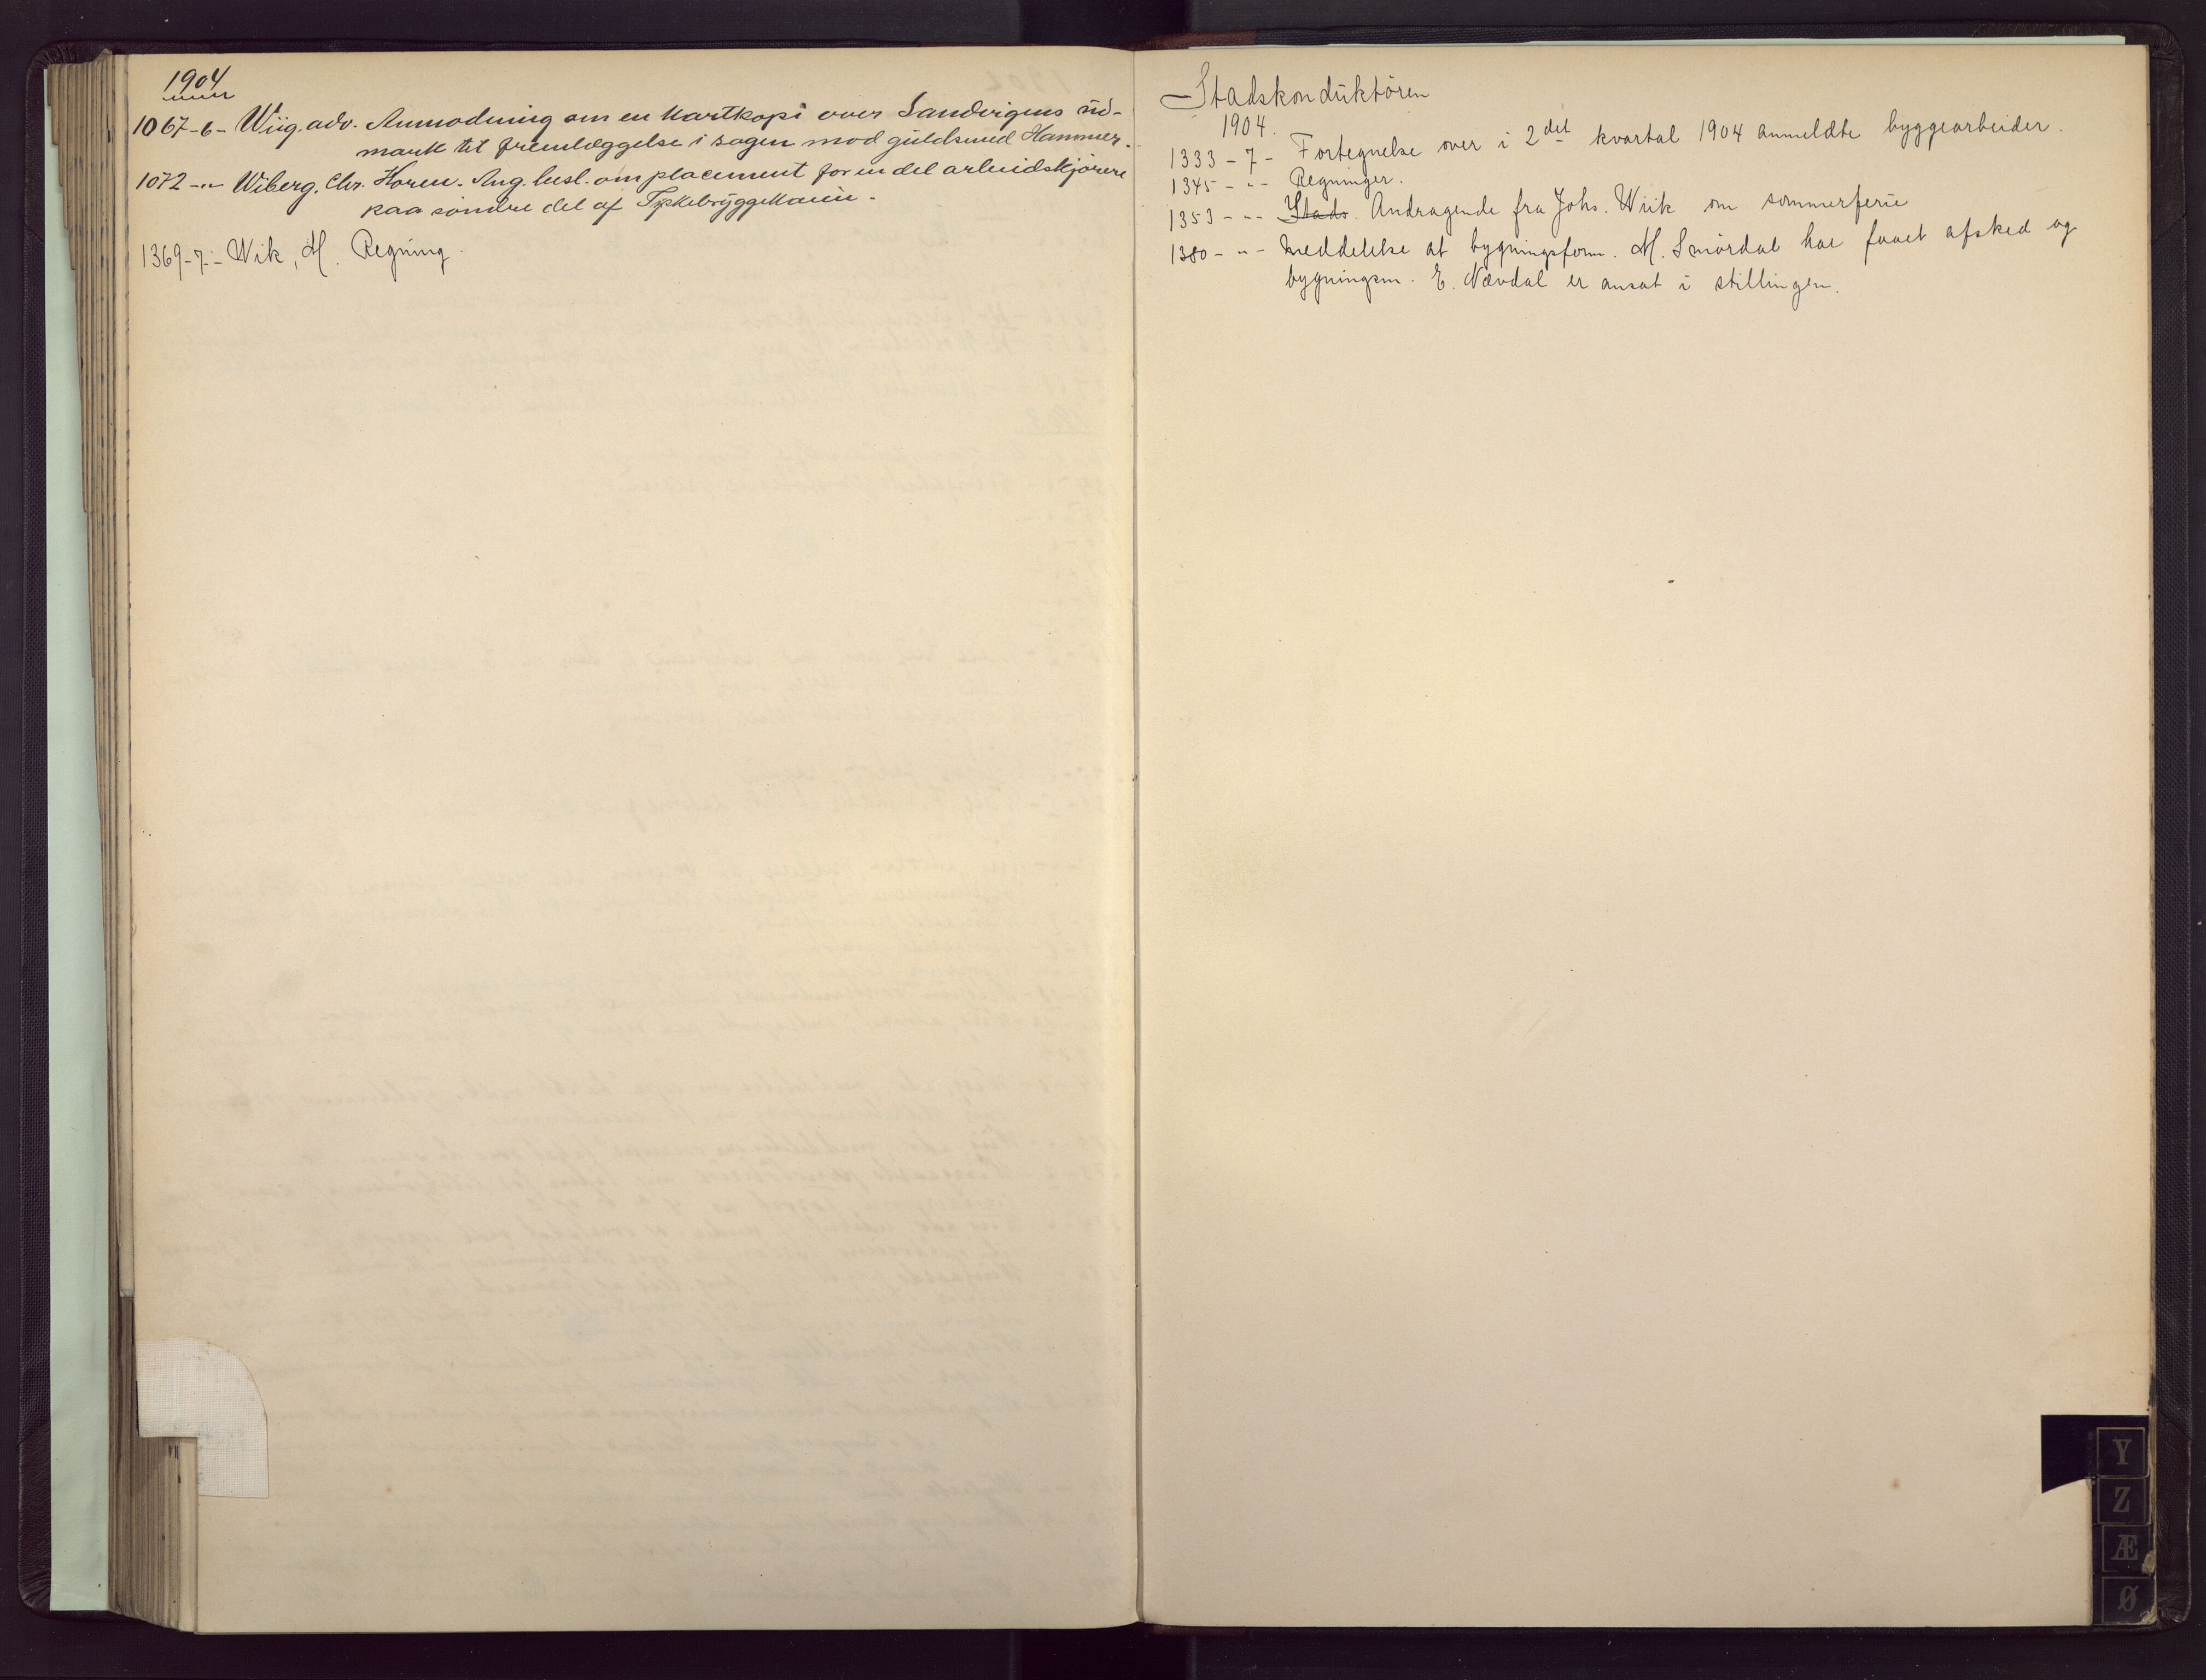 1904
1067-6- Wiig. adv. Anmodning om en kartkopi over Sandvigens ud-
mark til fremlæggelse i sagen mod guldsmed Hammer.
1072 -"- Wiberg. Chr. Ang. besl. om placement for en del arbeidskjørere
paa søndre del af Tyskebryggekaien.
1369-7- Wik, M. Regning.
Stadskonduktøren
1904.
1333 - 7 - Fortegnelse over i 2det kvartal 1904 anmeldte byggearbeider.
1345 - " - Regninger.
1353 - " - Stads Andragende fra Johs. Wiik om sommerferie
1380 - " - Meddelelse at bygningsform. M. Smørdal har faaet afsked og
bygningsm. E. Nævdal er ansat i stillingen.
Y
Z
Æ
Ø